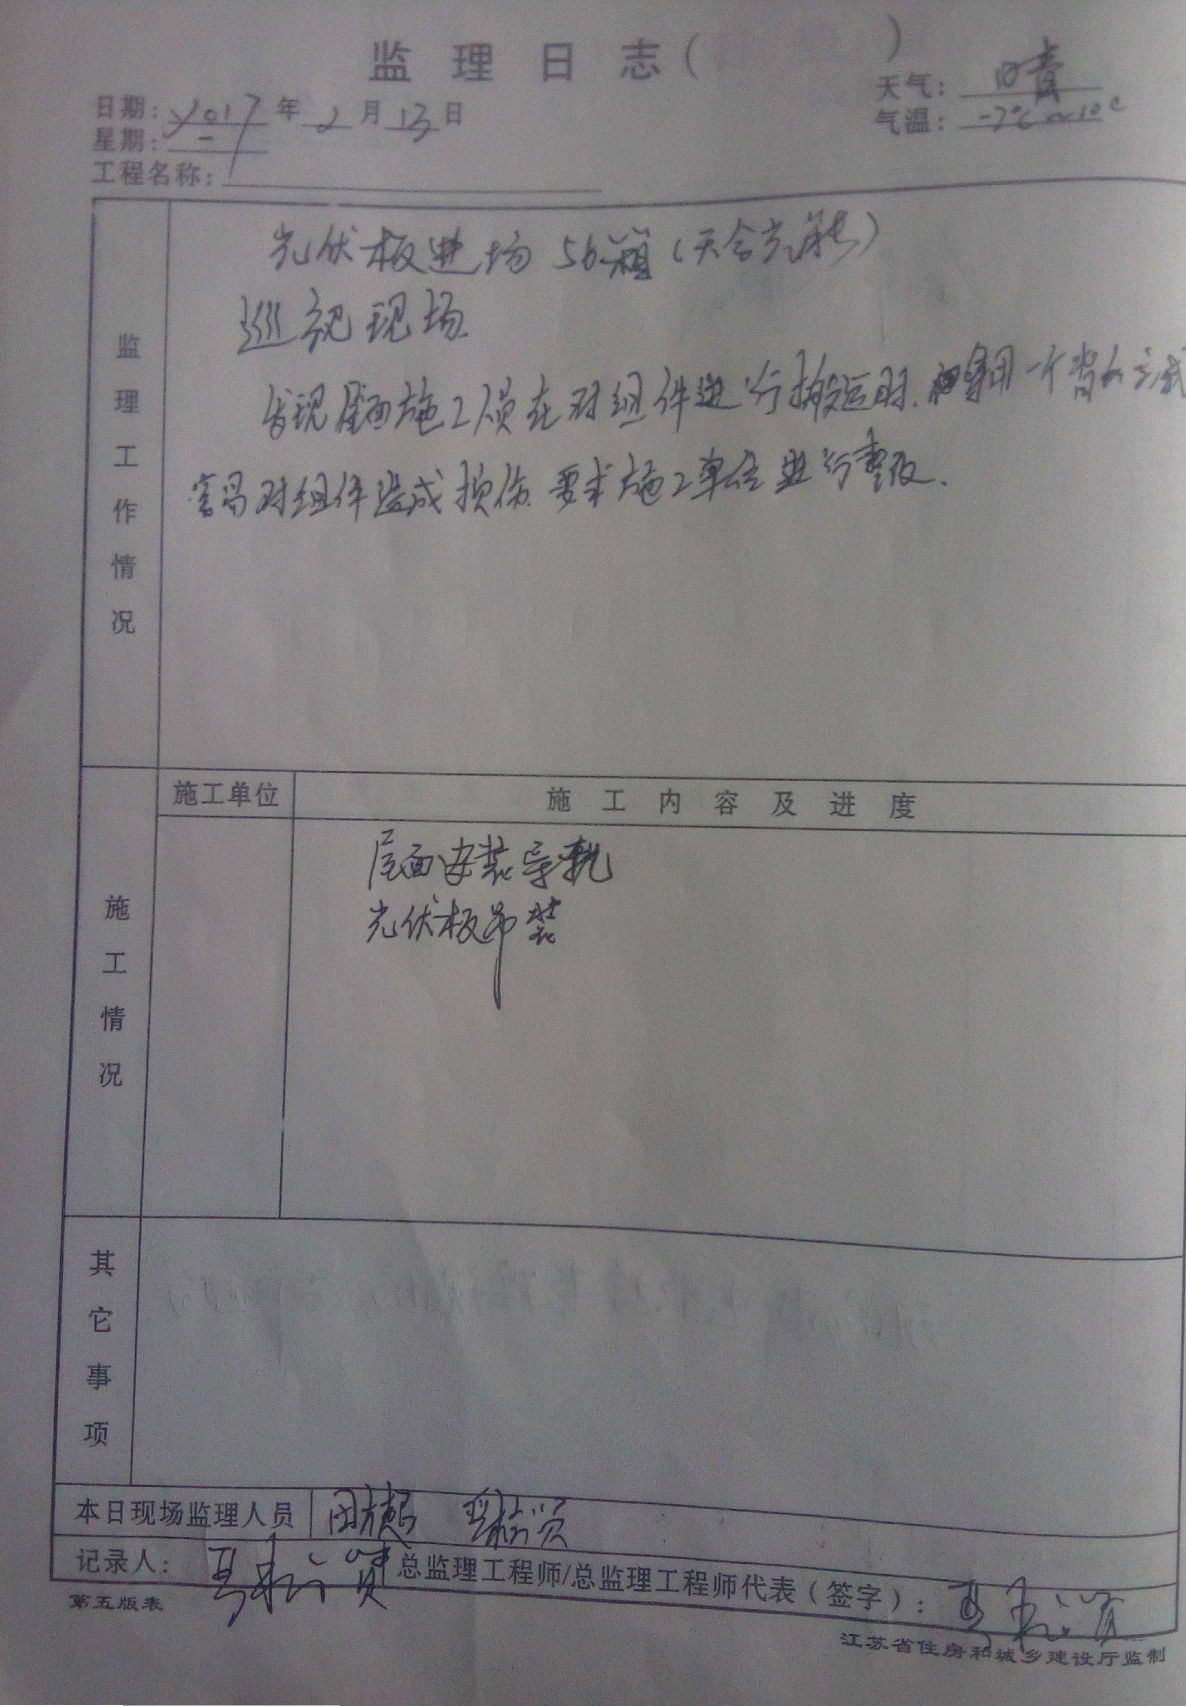 监理日志（ ）
日期：2017年2月13日 天气：晴
星期：一 气温：-2℃~10℃
工程名称：
监理工作情况
光伏板进场 56箱（天合光能）
巡视现场
发现屋面施工员在对组件进行搬运时，采用一个背的方式
容易对组件造成损伤 要求施工单位进行整改.
施工单位 施工内容及进度
施工情况
屋面安装导轨
光伏板吊装
其它事项
本日现场监理人员
记录人： 总监理工程师/总监理工程师代表（签字）：
第五版表
江苏省住房和城乡建设厅监制